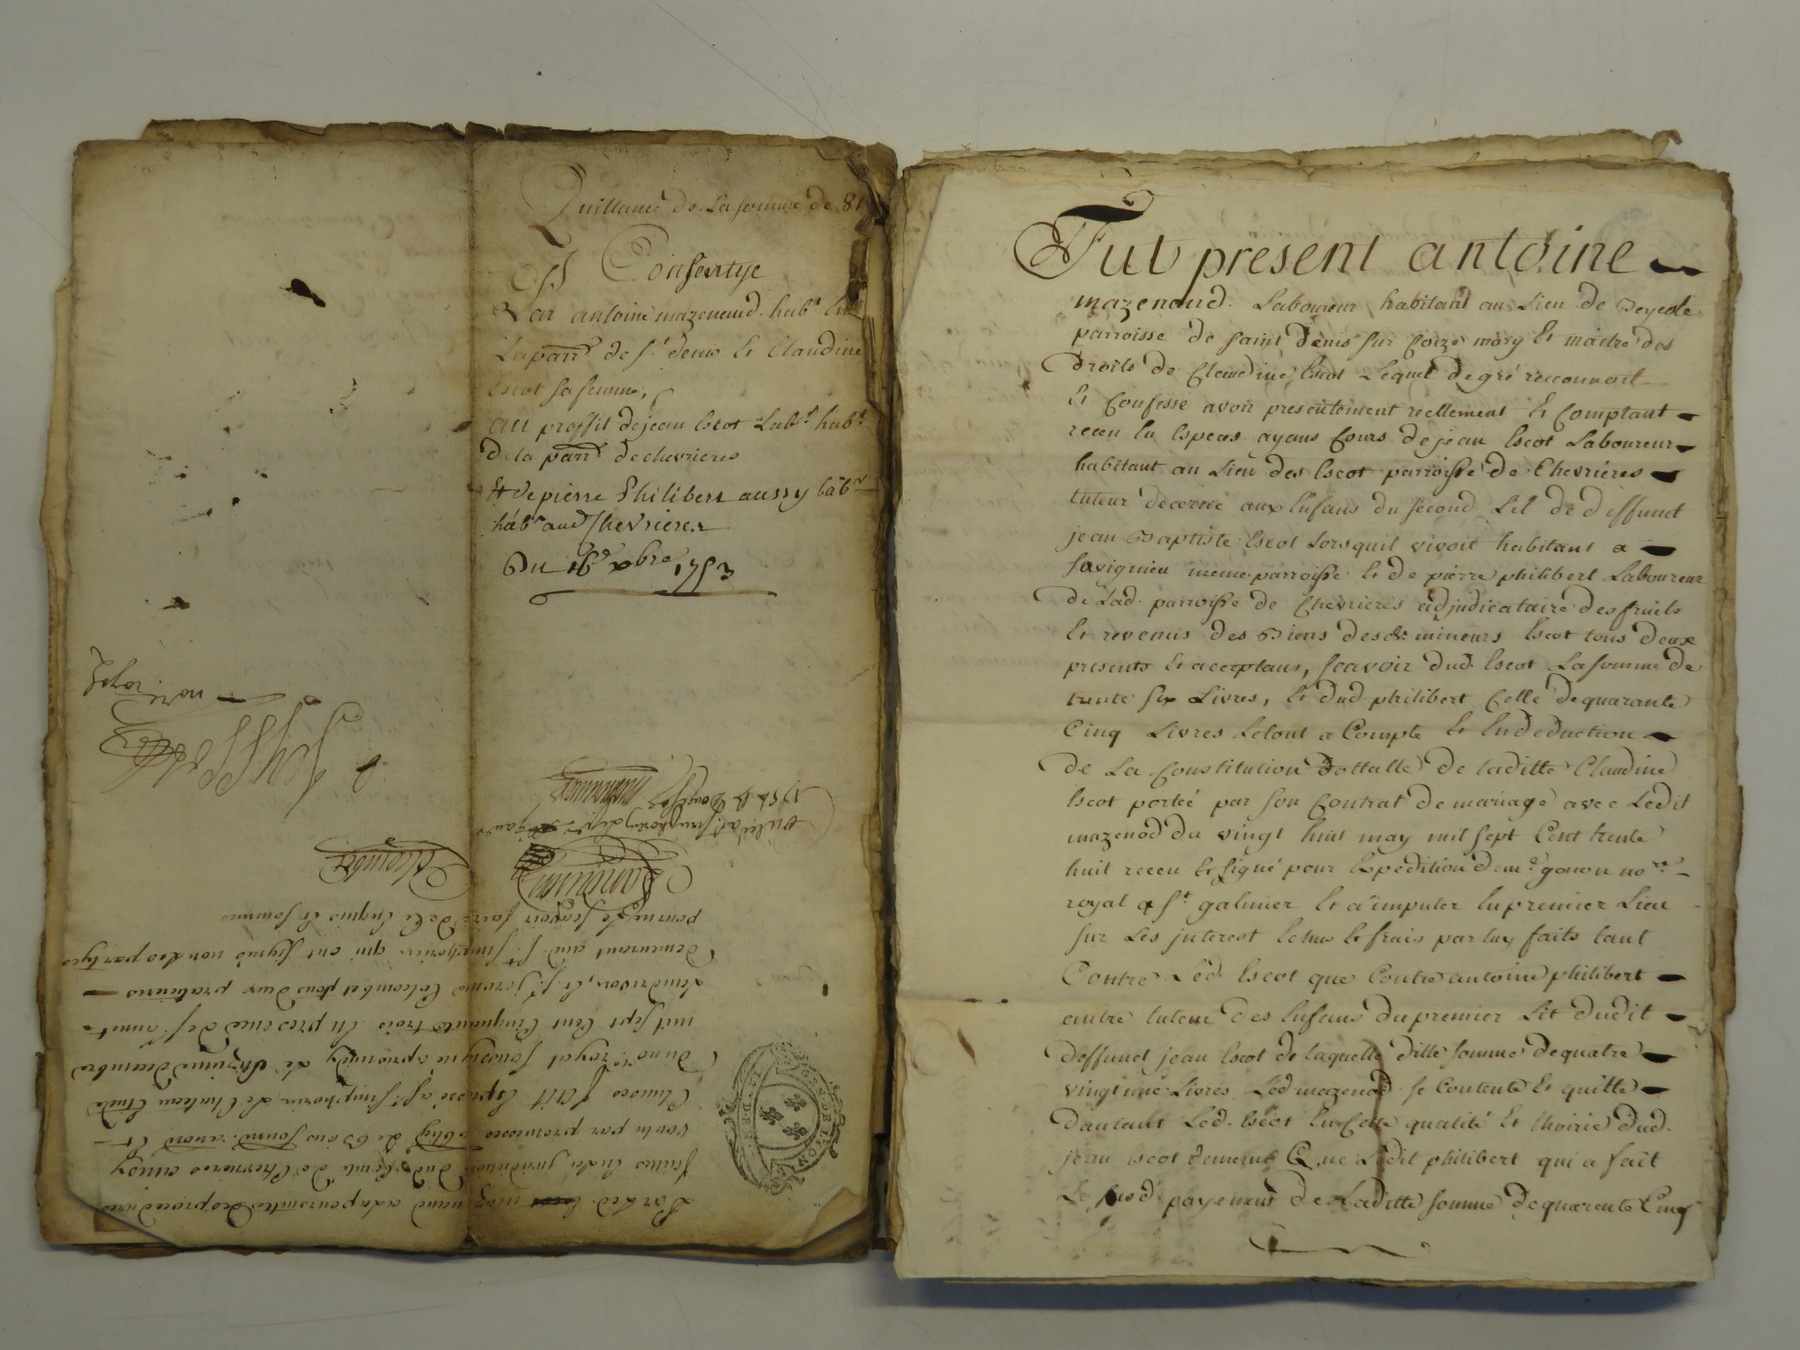 Quittance de La somme de 81
Consentye
Par antoine mazenaud hab.t En
La parr.e de s.t denis Et Claudine
Escot sa femme,
au proffit de jean Escot Lab.r hab.t
de la parr.e de chevrieres
Et de pierre Philibert aussy lab.r
hab.t aud Chevrieres
Du xbre 1753
Par Led. mazenaud a la poursuitte des procedures
faittes En la jurisdiction dud. Comté de Chevrieres auroy
voulu par promesses oblig. de Biens soumis. renond. Et
Clauses fait Et passé a s.t simphorien Le Chateau Etude
du no.re royal soussigné apres midy Le Decembre
mil sept Cent Cinquante trois En presence de s.r
Et s.r jerome Colcombet tous deux praticiens
demeurant aud. s.t simphorien qui ont signé non les partyes
pour ne le sçavoir faire de Ce Enquis Et sommés
Colcombet
nore royal
Fut present antoine
mazenaud Laboureur habitant au Lieu de
parroisse de saint denis sur Coize mary Et maitre des
Droits de Claudine Escot Lequel de gré reconnoit
Et Confesse avoir presentement reellement Et Comptant
receu En Especes ayans Cours de jean Escot Laboureur
habitant au Lieu des Escot parroisse de Chevrieres
tuteur decerné aux Enfans du second Lit de deffunct
jean Baptiste Escot Lorsquil vivoit habitant a
savignieu meme parroisse Et de pierre philibert Laboureur
de Lad. parroisse de Chevrieres adjudicataire des fruits
Et revenus des Biens desd. mineurs Escot tous deux
presents Et acceptans, scavoir dud. Escot La somme de
trente six Livres, Et dud. philibert Celle de quarante
Cinq Livres Letout a Compte Et En deduction
de La Constitution Dottalle de laditte Claudine
Escot portée par son Contrat de mariage avec Ledit
mazenod du vingt huit may mil sept Cent trente
huit receu Et signé pour Expedition de m.e gonon no.re
royal a s.t galmier Et a imputer En premier Lieu
sur Les interest Echus Et frais par Luy faits tant
Contre Led. Escot que Contre antoine philibert
autre tuteur des Enfans du premier Lit dudit
deffunct jean Escot de laquelle ditte somme de quatre
vingt une Livres Led. mazenod se Contente Et quitte
dautant Led. Escot En Cette qualité Et Lhoirie dud.
jean Escot Ensemble Que Ledit philibert qui a fait
Le susd. payement de Laditte somme de quarente Cinq